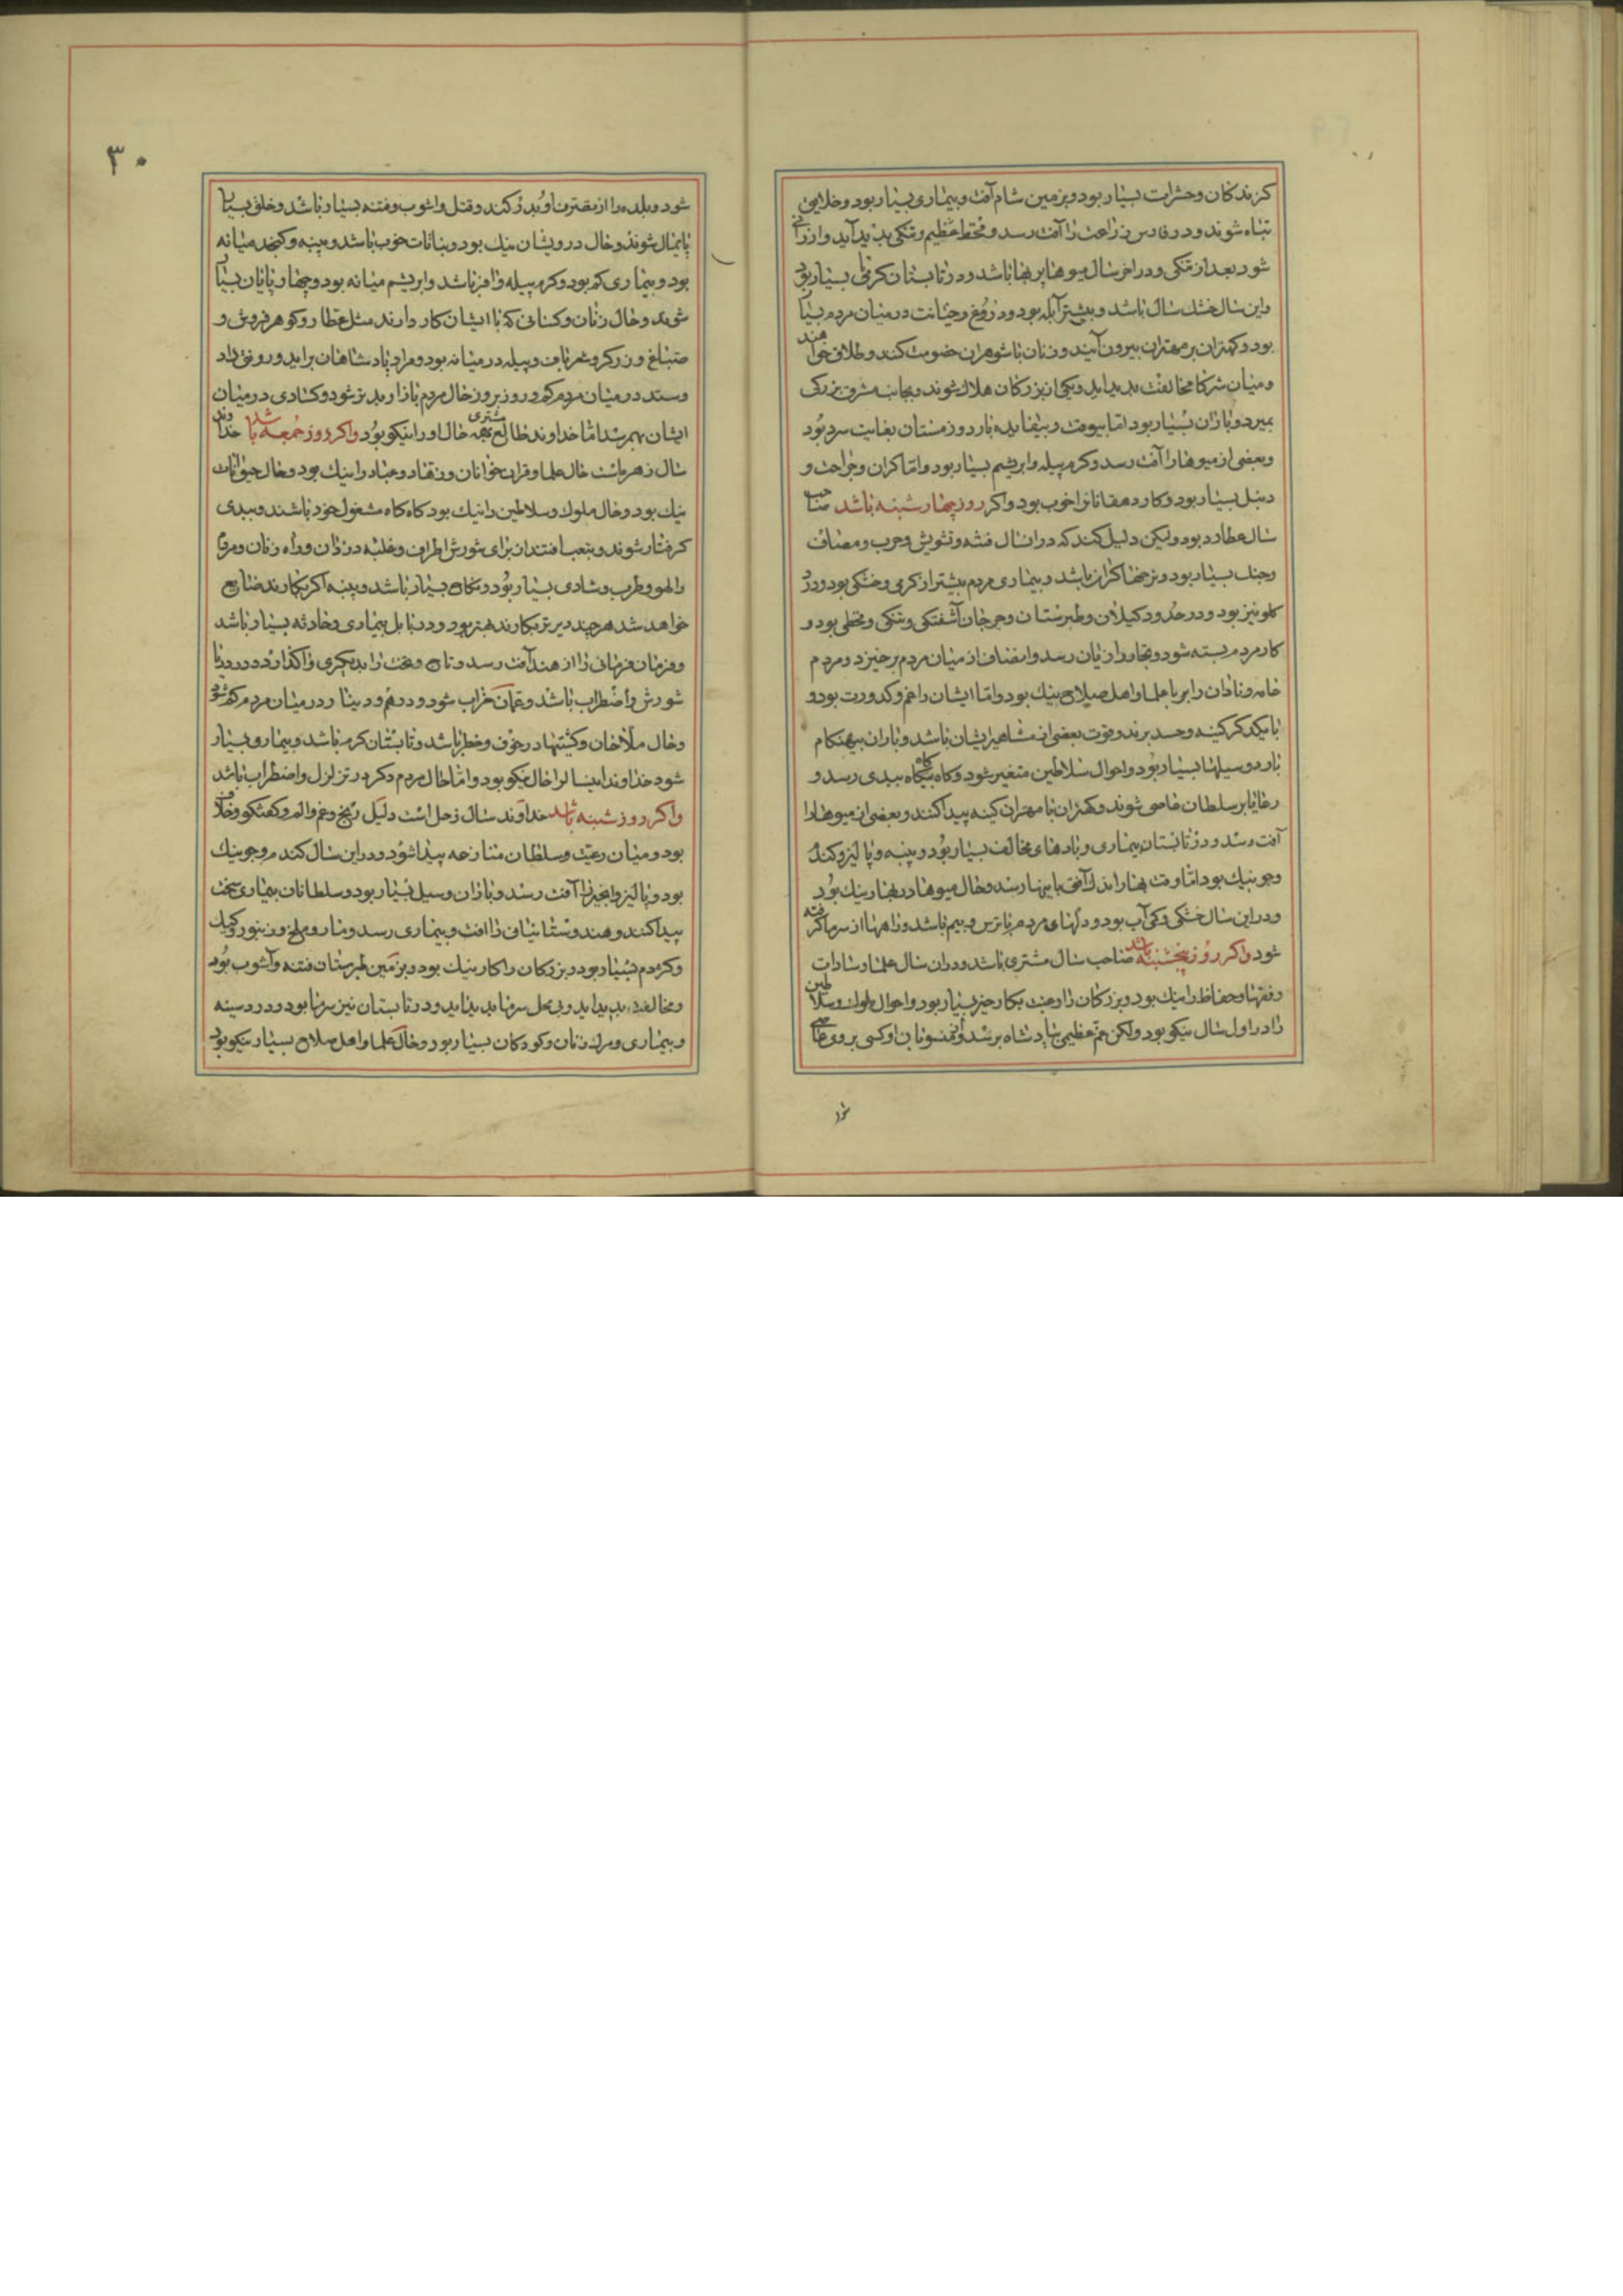 کزندکان و حشرات بسیار بود و بزمین شام آفت و بیماری بسیار بود و خلایق
تباه شوند و در فارس زراعت را آفت رسد و قحط عظیم و تنکی پدید آید و ارزانی
شود بعد از تنکی و در اخر سال میوها پربها باشد و در تابستان کرمی بسیار بود
و این سال خشک سال باشد و بیشتر آبله بود و دروغ و خیانت در میان مردم بسیار
بود و کهتران بر مهتران بیرون آیند و زنان با شوهران خصومت کنند و طلاق خواهند
و میان شرکا مخالفت پدید اید و یکی از بزرکان هلاک شوند و بجانب مشرق بزرکی
بمیرد و باران بسیار بود اما بیوقت و بیفایده بارد و زمستان بغایت سرد بود
و بعضی از میوها را آفت رسد و کرم پیله و ابریشم بسیار بود و اما کران و جراحت و
دنبل بسیار بود و کار دهقانان خوب بود و اکر روز چهارشنبه باشد صاحب
سال عطارد بود ولیکن دلیل کند که در ان سال فتنه و تشویش و حرب و مصاف
و جنک بسیار بود و نرخها کران باشد و بیماری مردم بیشتر از کرمی و خشکی بود و درد
کلو نیز بود و در حدود کیلان و طبرستان و جرجان آشفتکی و تنکی و قحطی بود و
کار مردم بسته شود و تجار را زیان رسد و انصاف از میان مردم برخیزد و مردم
خامه و نادان را بر با علما و اهل صلاح نیک بود و اما ایشان را غم و کدورت بود و
با یکدکر کینه و حسد برند و فوت بعضی از مشاهیر ایشان باشد و باران بیهنکام
بارد و سیلها بسیار بود و احوال سلاطین متغیر شود و کاه بیکاه ببدی رسد و
رعایا بر سلطان عاصی شوند و کهتران با مهتران کینه پیدا کنند و بعضی از میوها را
آفت رسد و در تابستان بیماری و بادهای مخالف بسیار بود و پنبه و پالیز و کندم
و جو نیک بود اما وقت بهار اندک آفتی باینها رسد و حال میوها در بهار نیک بود
و در این سال خشکی و کم آب بود و دلهای مردم با ترس و بیم باشد و راهها از سرما کرفته
شود و اکر روز پنجشنبه باشد صاحب سال مشتری باشد و در ان سال علما و سادات
و فقها و حفاظ را نیک بود و بزرکان را رغبت بکار خیر بسیار بود و احوال ملوک و سلاطین
را در اول سال نیکو بود ولکن غم عظیمی بپادشاه برسد و از منسوبان او کسی بر وی عاصی
شود
۳۰
شود و بلده را از تصرف او بدر کند و قتل و اشوب و فتنه بسیار باشد و خلق بسیار
پایمال شوند و حال درویشان نیک بود و نباتات خوب باشد و پنبه و کنجد میانه
بود و بیماری کم بود و کرم پیله وافر باشد و ابریشم میانه بود و چهارپایان بسیار
شوند و حال زنان و کسانی که با ایشان کار دارند مثل عطار و کوهرفروش و
صباغ و زرکر و شعرباف و پیله در میانه بود و مراد پادشاهان براید و رونق داد
و ستد در میان مردم کم و روز بروز حال مردم بازار بدتر شود و کسادی در میان
ایشان بهم رسد اما خداوند طالع بهم مشتری حال او را نیکو بود و اکر روز جمعه باشد خداوند
سال زهره است حال علما و قران خوانان و زهاد و عباد را نیک بود و حال حیوانات
نیک بود و حال ملوک و سلاطین را نیک بود کاه کاه مشغول خود باشند و ببدی
کرفتار شوند و بتعب افتند از برای شورش اطراف و غلبه دزدان و راه زنان و مردم
را لهو و طرب و شادی بسیار بود و نکاح بسیار باشد و پنبه اکر بکارند ضایع
خواهد شد هر چند دیرتر بکارند بهتر بود و در بابل بیماری و حادثه بسیار باشد
و فرمان فرمائی را از هند آفت رسد و تاج و تخت را بدیکری واکذارد و در دریا
شورش و اضطراب باشد و عمان خراب شود و درهم و دینار در میان مردم کم شود
و حال ملاحان و کشتیها در خوف و خطر باشد و تابستان کرم باشد و بیمار و بسیار
شود خداوند اینسال را حال نیکو بود و اما حال مردم دکر در تزلزل و اضطراب باشد
و اکر روز شنبه باشد خداوند سال زحل است دلیل رنج و غم و الم و کفتکو و خلاف
بود و میان رعیت و سلطان منازعه پیدا شود و در این سال کندم و جو نیک
بود و پالیز و انجیر را آفت رسد و باران و سیل بسیار بود و سلطانان بیماری سخت
پیدا کنند و هندوستانیان را افت و بیماری رسد و مار و ملخ و زنبور و کیک
و کژدم بسیار بود و بزرکان را کار نیک بود و بزمین طبرستان فتنه و آشوب بود
و مخالفت پدید اید و بی محل سرما پدید اید و در تابستان نیز سرما بود و درد سینه
و بیماری و مرک زنان و کودکان بسیار بود و حال علما و اهل صلاح بسیار نیکو بود